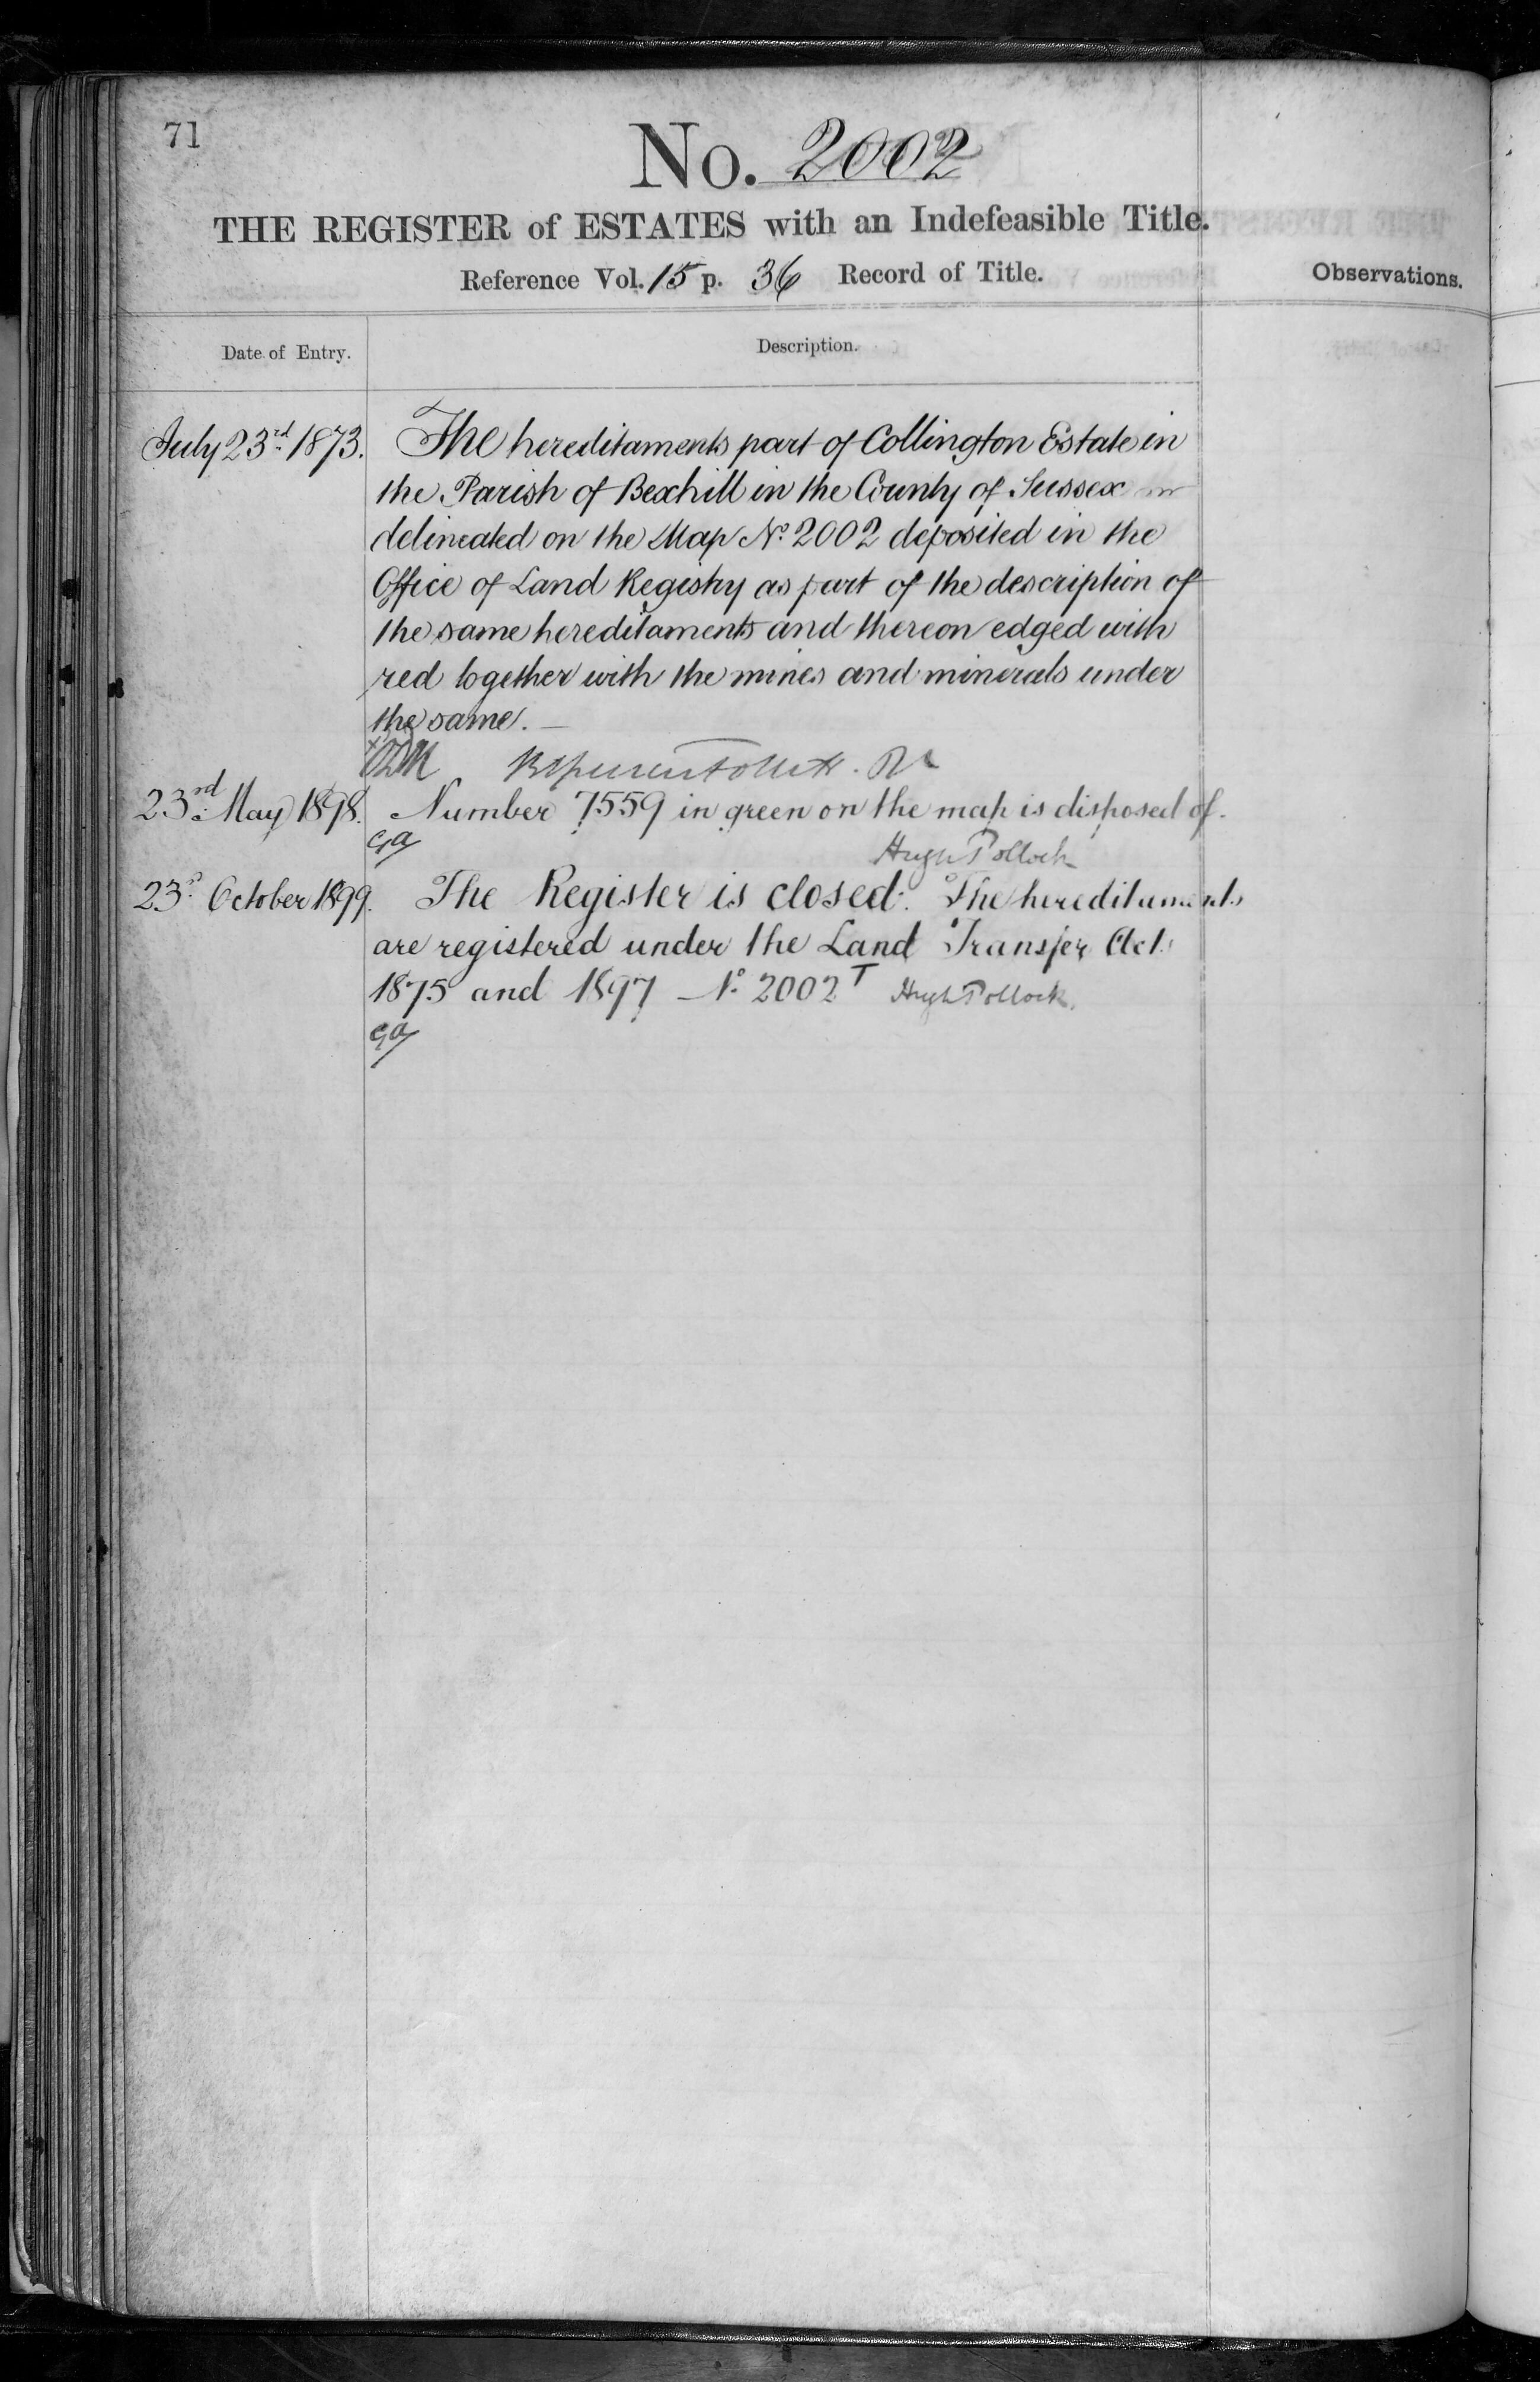 71
No. 2002
THE REGISTER of ESTATES with an Indefeasible Title.
Reference Vol. 15 p. 36 Record of Title.
Observations.
Date of Entry.
Description.
July 23rd 1873. The hereditaments part of Collington Estate in
the Parish of Bexhill in the County of Sussex
delineated on the Map No. 2002 deposited in the
Office of Land Registry as part of the description of
the same hereditaments and thereon edged with
red together with the mines and minerals under
the same. —
23rd May 1898. Number 7559 in green on the map is disposed of.
Hugh Pollock
23d October 1899. The Register is closed. The hereditaments
are registered under the Land Transfer Acts
1875 and 1897 No. 2002T Hugh Pollock.